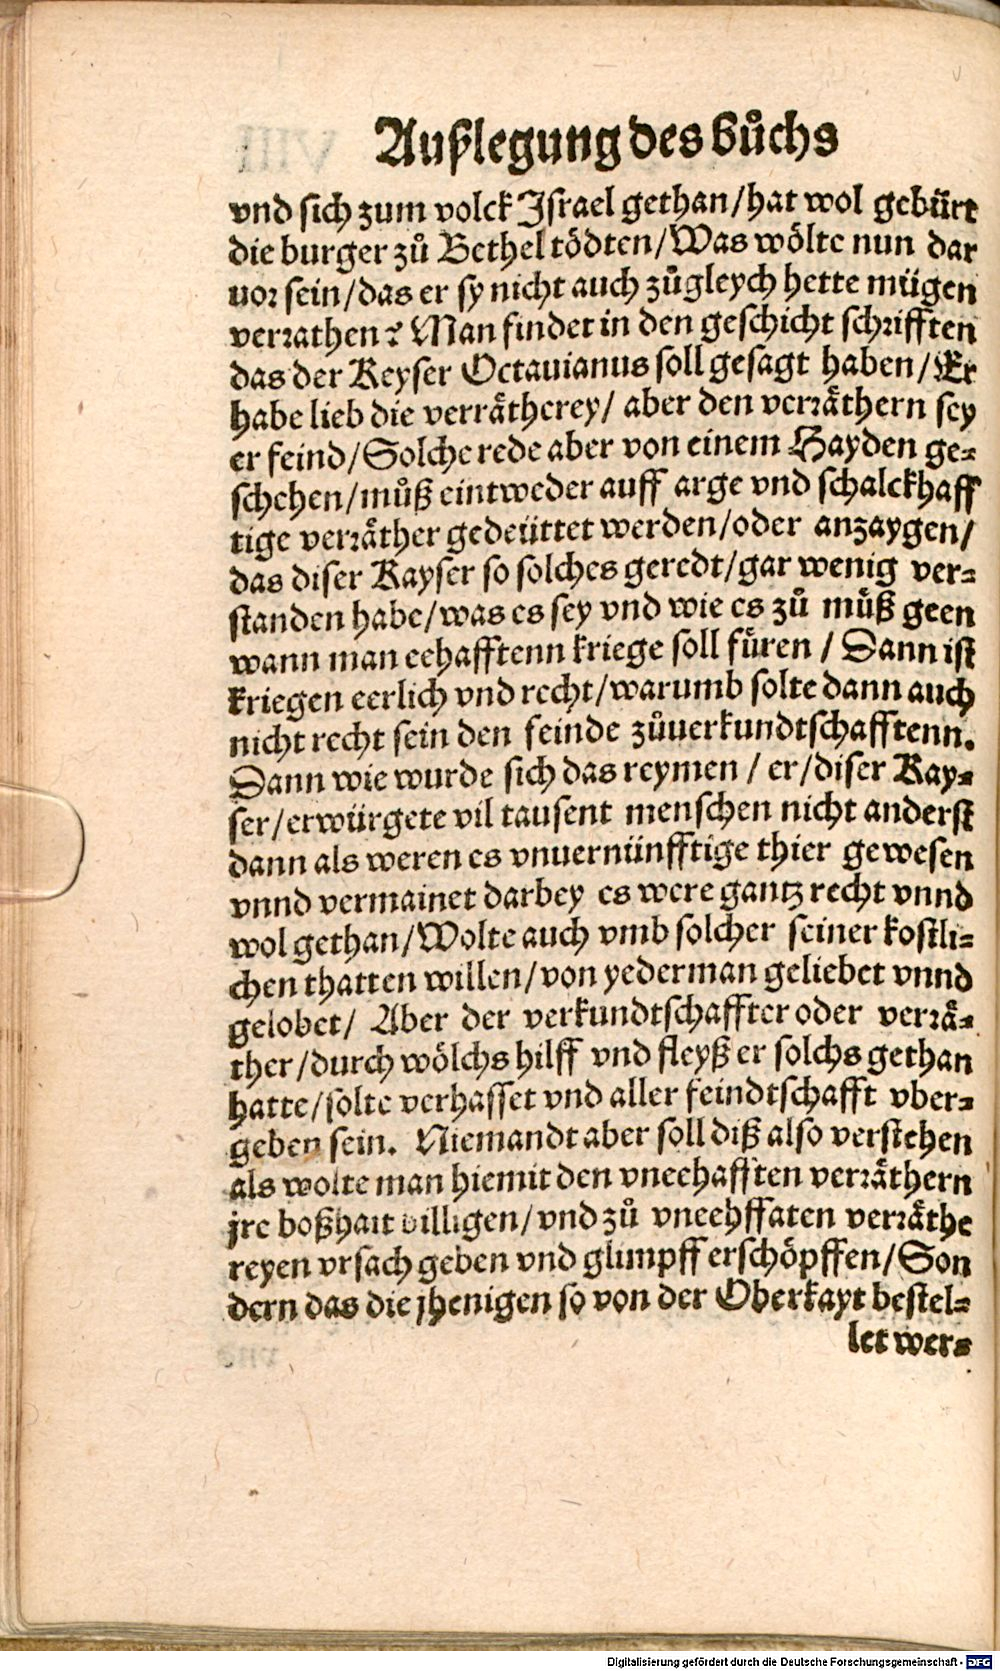 Außlegung des bůchs
vnd sich zum volck Israel gethan/hat wol gebürt
die burger zů Bethel tödten/Was wölte nun dar
vor sein/das er sy nicht auch zůgleych hette mügen
verrathen? Man findet in den geschicht schrifften
das der Keyser Octauianus soll gesagt haben/Er
habe lieb die verrätherey/ aber den verräthern sey
er feind/Solche rede aber von einem Hayden ge⸗
schehen/můß eintweder auff arge vnd schalckhaff
tige verräther gedeüttet werden/oder anzaygen/
das diser Kayser so solches geredt/gar wenig ver⸗
standen habe/was es sey vnd wie es zů müß geen
wann man eehafftenn kriege soll füren / Dann ist
kriegen eerlich vnd recht/warumb solte dann auch
nicht recht sein den feinde zůuerkundtschafftenn.
Dann wie wurde sich das reymen / er/diser Kay⸗
ser/erwürgete vil tausent menschen nicht anderst
dann als weren es vnuernünfftige thier gewesen
vnnd vermainet darbey es were gantz recht vnnd
wol gethan/Wolte auch vmb solcher seiner kostli⸗
chen thatten willen/von yederman geliebet vnnd
gelobet/ Aber der verkundtschaffter oder verrä⸗
ther/durch wölchs hilff vnd fleyß er solchs gethan
hatte/solte verhasset vnd aller feindtschafft vber⸗
geben sein. Niemandt aber soll diß also verstehen
als wolte man hiemit den vneehafften verräthern
jre boßhait billigen/vnd zů vneehffaten verräthe
reyen vrsach geben vnd glimpff erschöpffen/Son
dern das die jhenigen so von der Oberkayt bestel⸗
let wer⸗
Digitalisierung gefördert durch die Deutsche Forschungsgemeinschaft - DFG